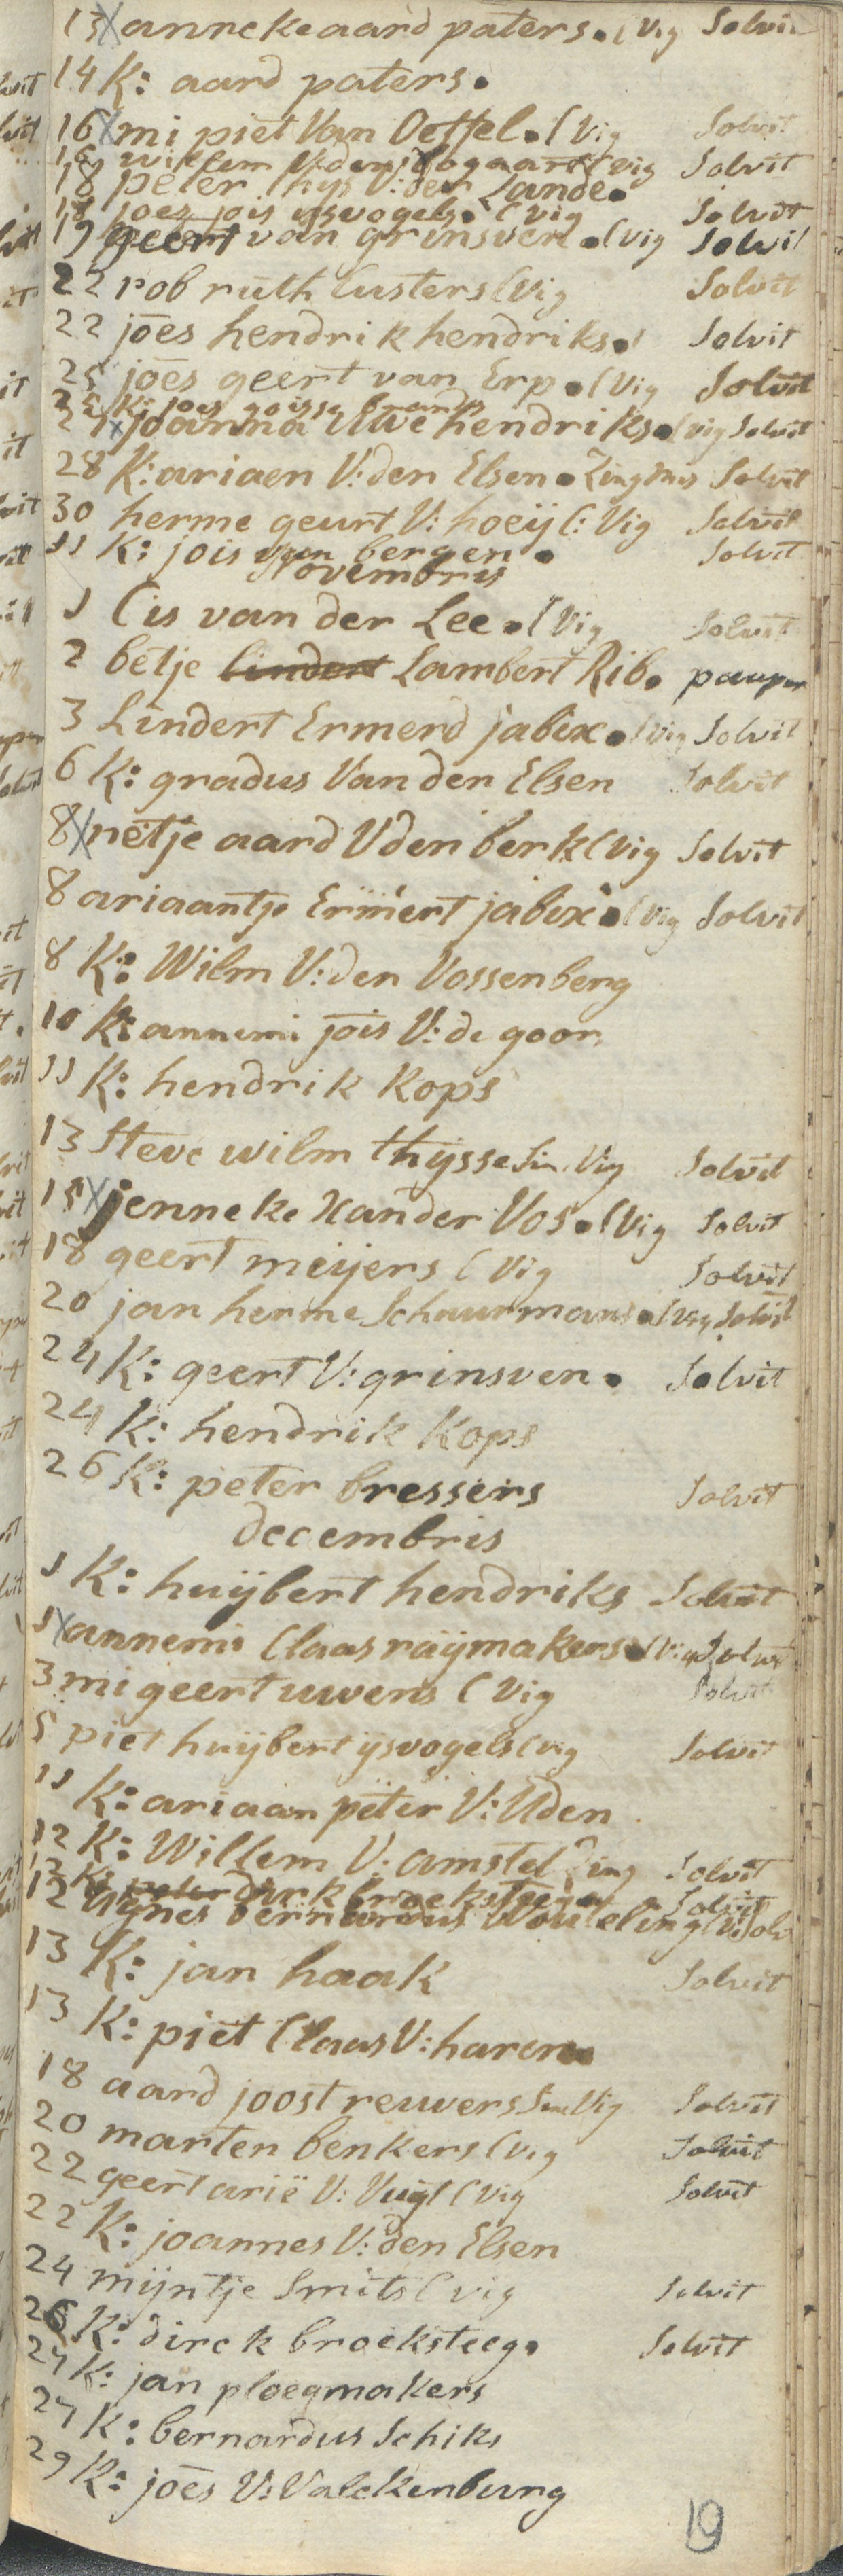 13 X annekeaard paters. (Vig Solvit
14 K: aard paters.
16 X mi piet Van Oeffel. (Vig Solvit
16 willem V:den bogaart (vig Solvit
18 peter thys V:der Lande.
18 joes jois ysvogels. (vig Solvit
19 geert van grinsven. (vig Solvit
22 rob ruth Custers (Vig Solvit
22 jōes hendrik hendriks. Solvit
25 jōes geert van Erp. (Vig Solvit
25 K: joes goisse brands
27 x joanna Uwe hendriks. (vig Solvit
28 K: ariaen V:den Elsen. Zingmis Solvit
30 herme geurt V: hoeij (: Vig Solvit
11 K: jois van bergen. Solvit
Novembris
1 Cis van der Lee. (Vig Solvit
2 betje lindert Lambert Rib. pauper
3 Lindert Ermerd jabix. (Vig Solvit
6 K: gradus Van den Elsen Solvit
8 X netje aard Vden berk (Vig Solvit
8 ariaantje Ermert jabix. (Vig Solvit
8 K: Wilm V:den Vossenberg
10 K: annemi jois V: de goor
11 K: hendrik Kops
13 Steve wilm thijsse Sin. Vig Solvit
15 X jenneke Xander Vos. (Vig Solvit
18 geert meijers (Vig Solvit
20 jan herme Schuurmans. (Vig Solvit
24 K: geert V: grinsven. Solvit
24 K: hendrik Kops
26 K: peter bressers Solvit
decembris
1 K: huijbert hendriks Solvit
1 X annemi Claas raijmakers. (Vig Solvit
3 mi geert uwens (Vig Solvit
5 piet huijbert ijsvogels (vig Solvit
11 K: ariaan peter V: Uden
12 K: Willem V: amstel Zing Solvit
12 K: peter dirk broeksteege Solvit
12 Agnes bernardus Wouteling (V Solv
13 K: jan haak Solvit
13 K: piet Claas V: haren
18 aard joost reuwers Sin Vig Solvit
20 marten benkers (Vig Solvit
22 geert arië V: Vugt (Vig Solvit
22 K: joannes V: den Elsen
24 mijntje Smits (vig Solvit
26 K: dirck broeksteeg. Solvit
27 K: jan ploegmakers
27 K: bernardus Schiks
29 K: jōes V: Valckenburg
19